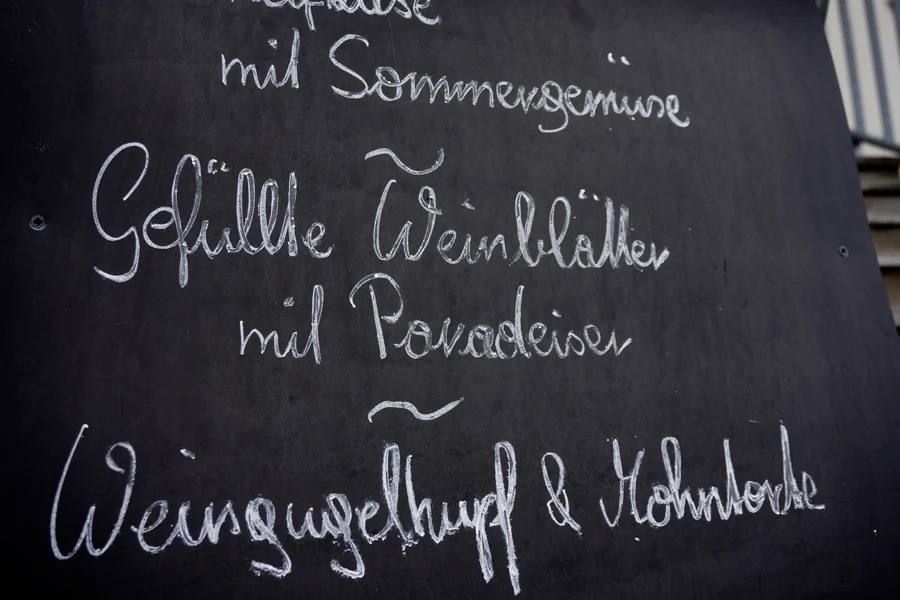 mit Sommergemüse
~
Gefüllte Weinblätter
mit Paradeiser
~
Weingugelhupf & Mohntorte